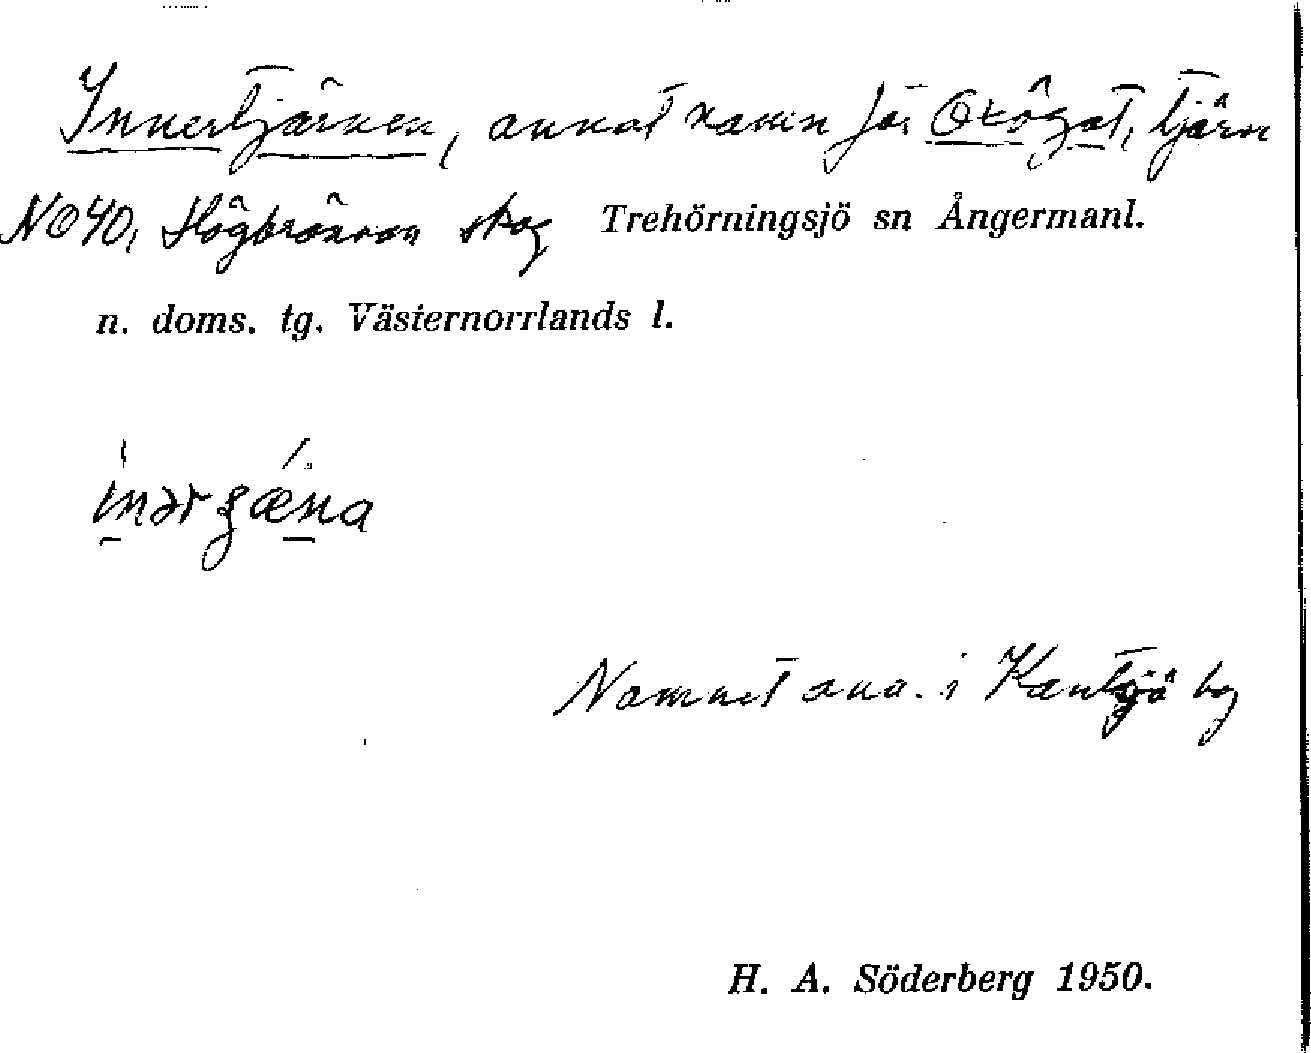 Innertjärnen, annat namn för Oxögat, tjärn
NO 40, Högbrännan skog Trehörningsjö sn Ångermanl.
n. doms. tg. Västernorrlands l.
Namnet anv. i Kantsjö by
H. A. Söderberg 1950.